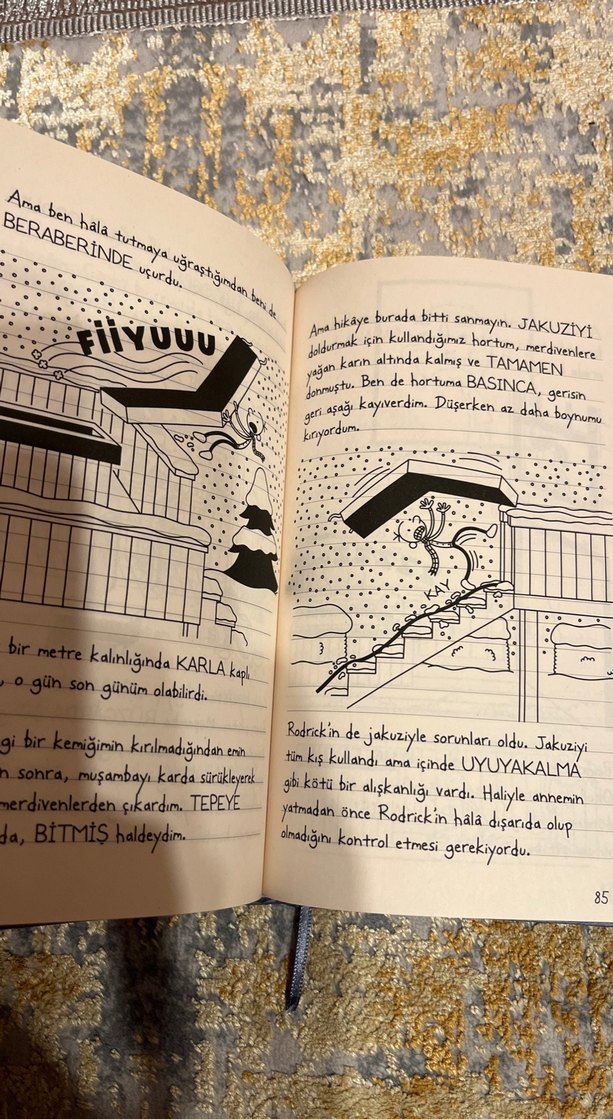 Ama ben hâlâ tutmaya uğraştığımdan beni de
BERABERİNDE uçurdu.
FİİYUUU
bir metre kalınlığında KARLA kaplı
, o gün son günüm olabilirdi.
gi bir kemiğimin kırılmadığından emin
n sonra, muşambayı karda sürükleyerek
merdivenlerden çıkardım. TEPEYE
da, BİTMİŞ haldeydim.
Ama hikâye burada bitti sanmayın. JAKUZİYİ
doldurmak için kullandığımız hortum, merdivenlere
yağan karın altında kalmış ve TAMAMEN
donmuştu. Ben de hortuma BASINCA, gerisin
geri aşağı kayıverdim. Düşerken az daha boynumu
kırıyordum.
KAY
Rodrick'in de jakuziyle sorunları oldu. Jakuziyi
tüm kış kullandı ama içinde UYUYAKALMA
gibi kötü bir alışkanlığı vardı. Haliyle annemin
yatmadan önce Rodrick'in hâlâ dışarıda olup
olmadığını kontrol etmesi gerekiyordu.
85